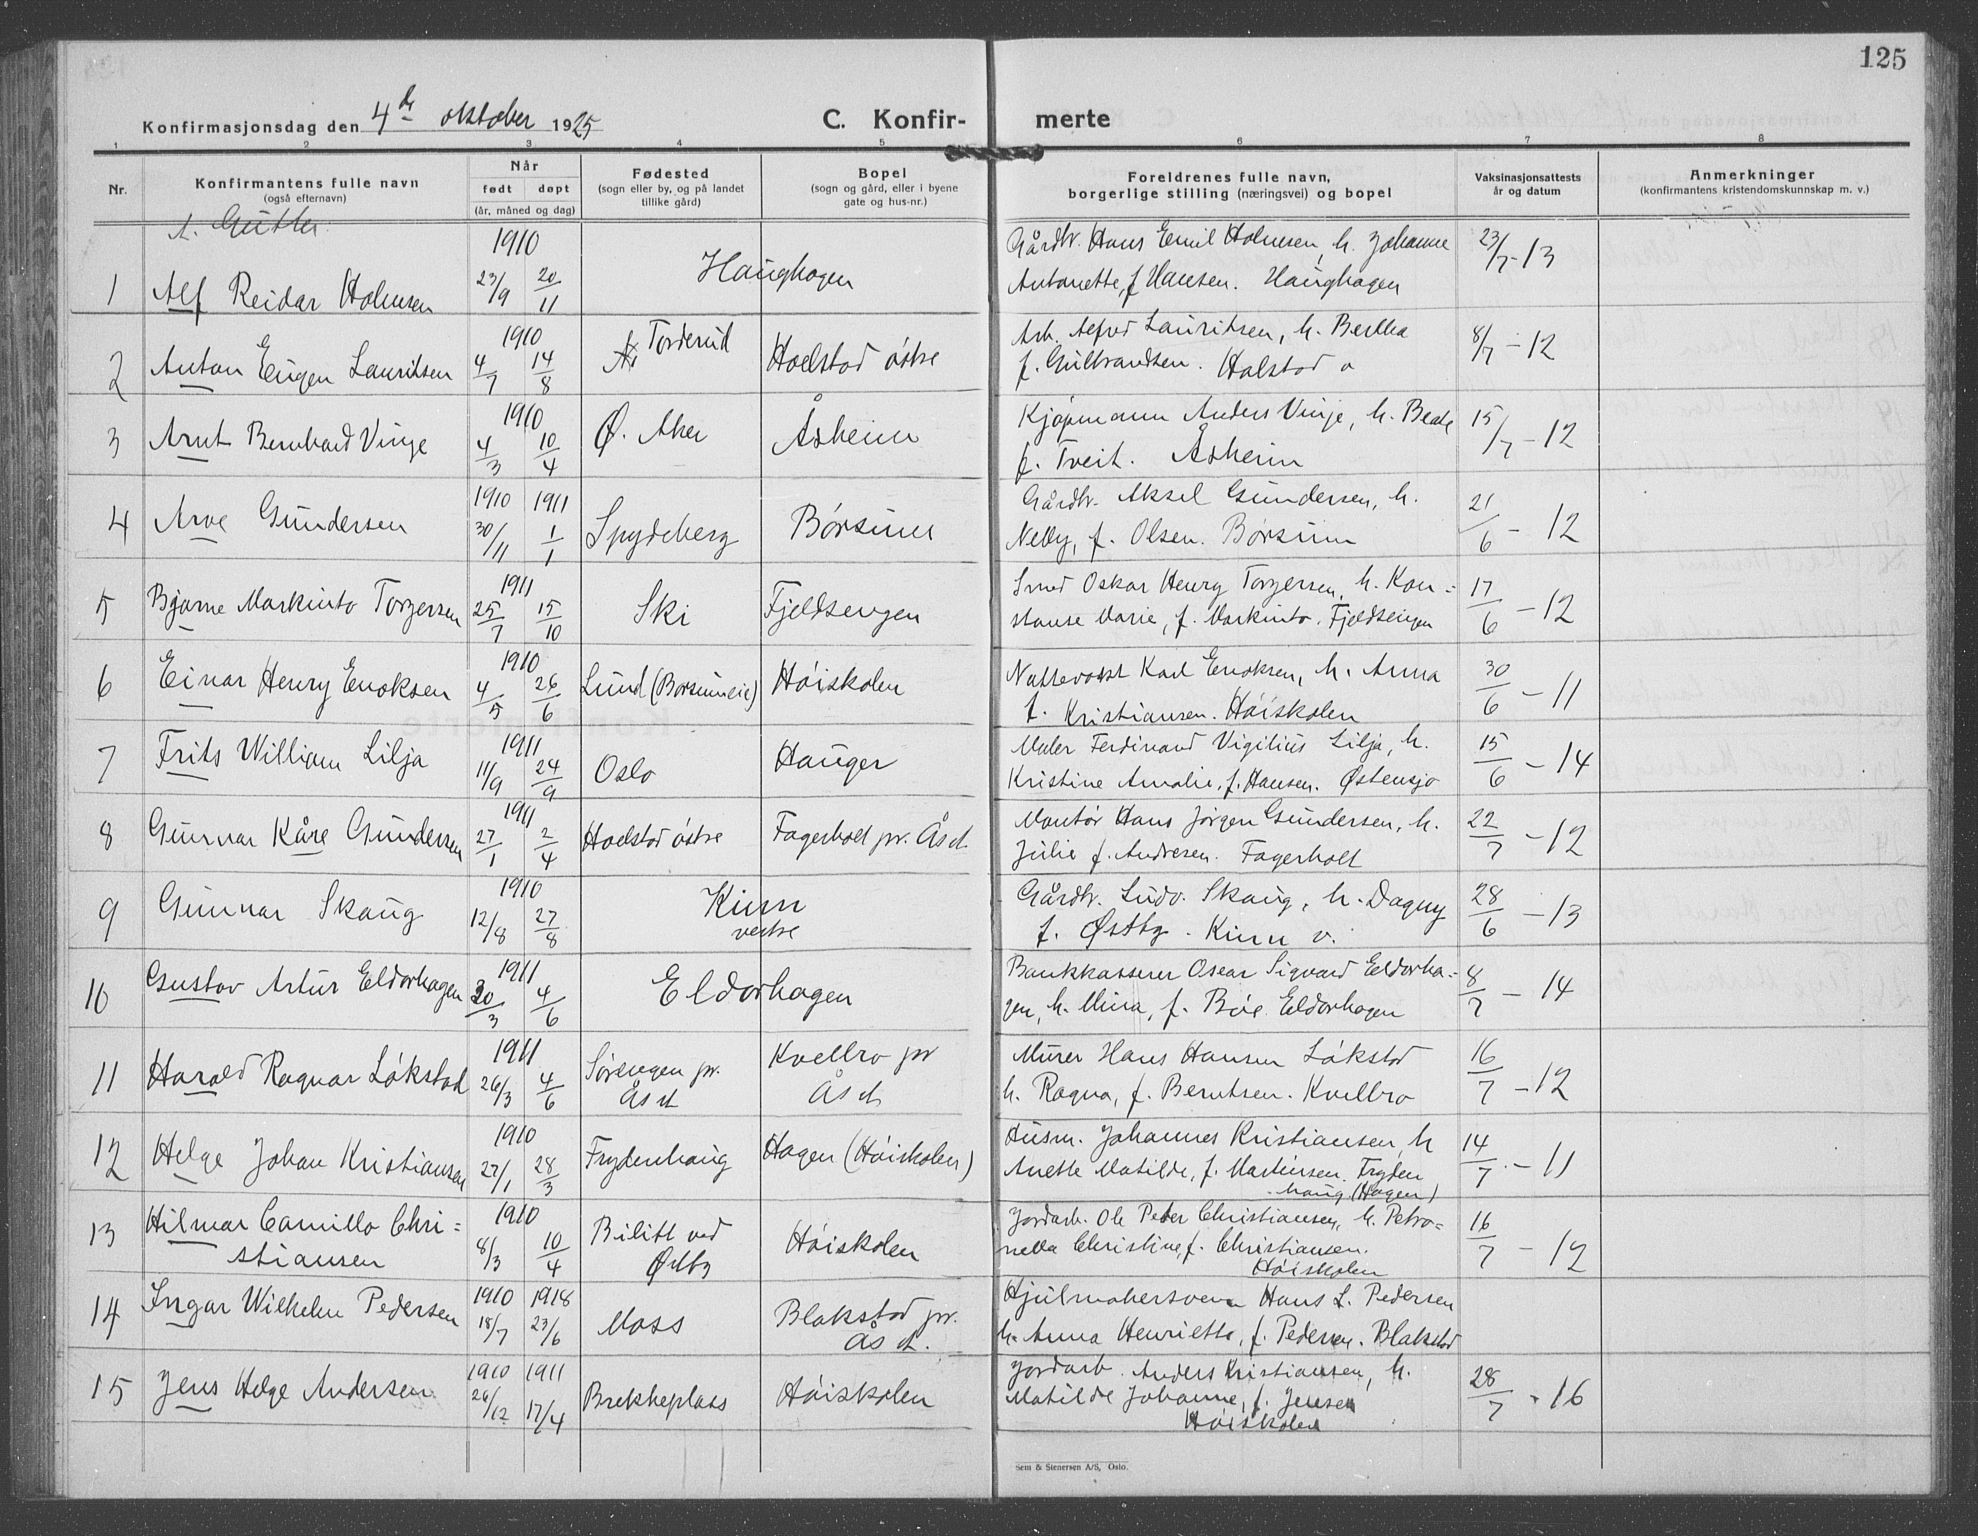 125
Konfirmasjonsdag den 4de oktober 1925
C. Konfir- merte
1 2 3 4 5 6 7 8
Nr.
Konfirmantens fulle navn
(også efternavn)
Når
født døpt
(år, måned og dag)
Fødested
(sogn eller by, og på landet
tillike gård)
Bopel
(sogn og gård, eller i byene
gate og hus-nr.)
Foreldrenes fulle navn,
borgerlige stilling (næringsvei) og bopel
Vaksinasjonsattests
år og datum
Anmerkninger
(konfirmantens kristendomskunnskap m. v.)
A. Gutter
1 Alf Reidar Holmsen 1910 23/9 20/11 Haughagen
Gårdbr. Hans Emil Holmsen, h. Johanne
Antonette, f. Hansen. Haughagen
23/7-13
2 Anton Eugen Lauritsen 1910 4/7 14/8 Torderud Holstad østre
Arb. Alfred Lauritsen, h. Bertha
f. Gulbrandsen. Holstad ø
8/7-12
3 Arnt Bernhard Vinje 1910 4/3 10/4 Ø. Aker Åsheim
Kjøpmann Anders Vinje, h. Beate
f. Tveit. Åsheim
15/7-12
4 Arve Gundersen 1910 30/11 1911 1/1 Spydeberg Børsum
Gårdbr. Aksel Gundersen, h.
Nelly, f. Olsen. Børsum
21/6-12
5 Bjarne Markinto Torgersen 1911 25/7 15/10 Ski Fjeldsengen
Smed Oskar Henry Torgersen, h. Kon=
stanse Marie, f. Markinto. Fjeldsengen
17/6-12
6 Einar Henry Enoksen 1910 4/5 26/6 Lund (Børsumeie) Høiskolen
Nattevakt Karl Enoksen, h. Anna
f. Kristiansen. Høiskolen
30/6-11
7 Frits William Lilja 1911 11/9 24/9 Oslo Hauger
Maler Ferdinand Vigilius Lilja, h.
Kristine Amalie, f. Hansen. Østensjø
15/6-14
8 Gunnar Kåre Gundersen 1911 27/1 2/4 Holstad østre Fagerholt pr. Ås st.
Montør Hans Jørgen Gundersen, h.
Julie f. Andresen. Fagerholt
22/7-12
9 Gunnar Skaug 1910 12/8 27/8 Kinn
vestre
Gårdbr. Ludv. Skaug, h. Dagny
f. Østby. Kinn v.
28/6-13
10 Gustav Artur Eldorhagen 1911 30/3 4/6 Eldorhagen
Bankkasserer Oscar Sigvard Eldorha=
gen, h. Mina, f. Bøe. Eldorhagen
8/7-14
11 Harald Ragnar Løkstad 1911 26/3 4/6 Sørengen pr.
Ås st
Kvellro pr
Ås st.
Murer Hans Hansen Løkstad
h. Ragna, f. Berntsen. Kvellro
16/7-12
12 Helge Johan Kristiansen 1910 27/1 28/3 Frydenhaug Hagen (Høiskolen)
Husm. Johannes Kristiansen, h
Anette Matilde, f. Martinsen. Fryden
haug (Hagen)
14/7-11
13 Hilmar Camillo Chri=
stiansen
1910 8/3 10/4 Bilitt ved
Østby
Høiskolen
Jordarb. Ole Peter Christiansen, h. Petro=
nella Christine, f. Christiansen.
Høiskolen
16/7-12
14 Ingar Wilhelm Pedersen 1910 18/7 1918 23/6 Moss Blakstad pr.
Ås st.
Hjulmakersvenn Hans L. Pedersen
h. Anna Henriette, f. Pedersen. Blakstad
15 Jens Helge Andersen 1910 26/12 1911 17/4 Brekkeplass Høiskolen
Jordarb. Anders Kristiansen, h.
Matilde Johanne, f. Jensen
Høiskolen
28/7-16
Sem & Stenersen A/S, Oslo.